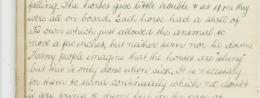 falling. The horses give little trouble & at 4 pm they
were all on board. Each horse had a stall of
its own which just allowed the animal to
move a few inches, but neither turn nor lie down.
Many people imagine that the horses are "slung"
but this is only done when sick. It is necessary
for them to stand continually which no doubt
is very